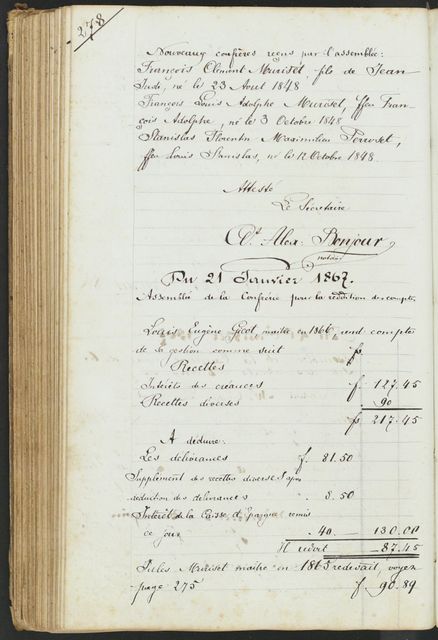 278
Nouveaux confrères reçus par l'assemblée:
François Clément Muriset, fils de Jean
Jude, né le 23 Aout 1848
François Louis Adolphe Muriset, ffeu Fran-
çois Adolphe, né le 3 Octobre 1848
Stanislas Florentin Maximilien Perroset,
ffeu Louis Stanislas, né le 12 Octobre 1848.
Attesté
Le Secretaire
Ct. Alex: Bonjour
notaire
Du 21 Janvier 1867.
Assemblée de la Confrérie pour la reddition des comptes
Louis Eugène Girot, maître en 1866, rend compte
de sa gestion comme suit
Recettes
Intérêts des créances f. 127.45
Recettes diverses " 90
217.45
A déduire:
Les délivrances f. 81.50
Supplement des recettes diverses après
réduction des délivrances " 8.50
Intérêt de la Caisse d'Epargne remis
ce jour " 40.— 130.00
Il redoit — 87.45
Jules Muriset maître en 1865 redevait, voyez
page 275 f. 90.89